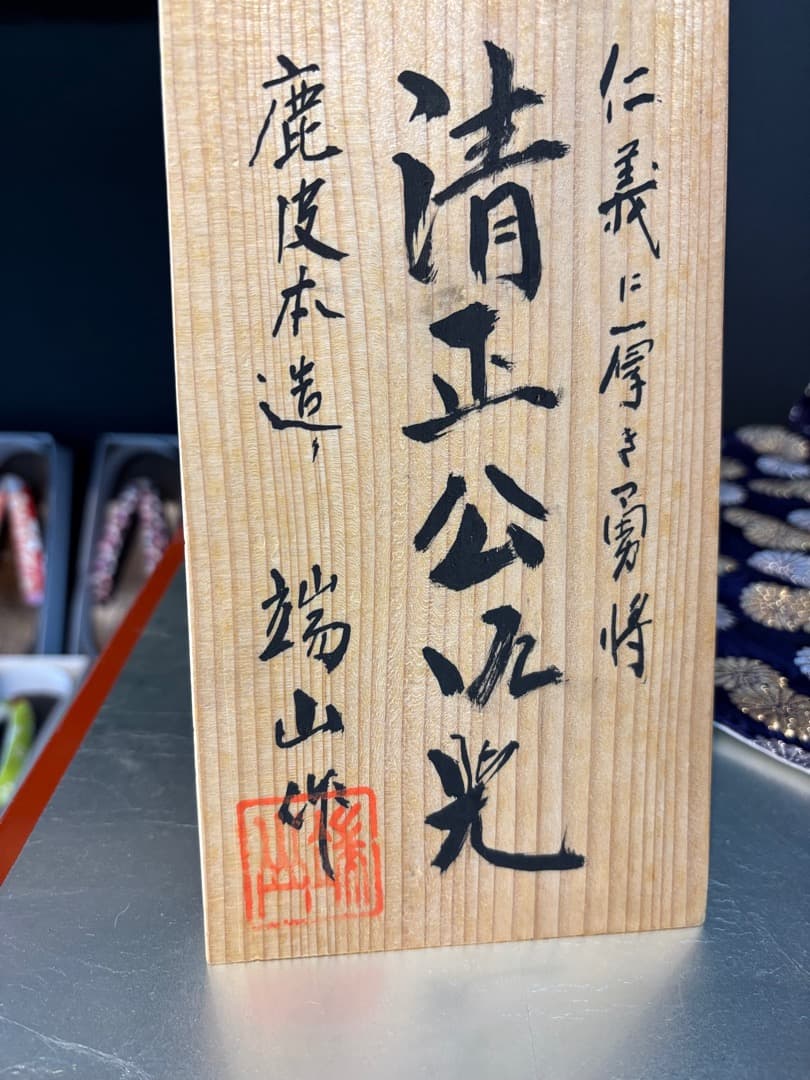 仁義に厚き勇将
清正公 光
鹿皮本造り 端山作